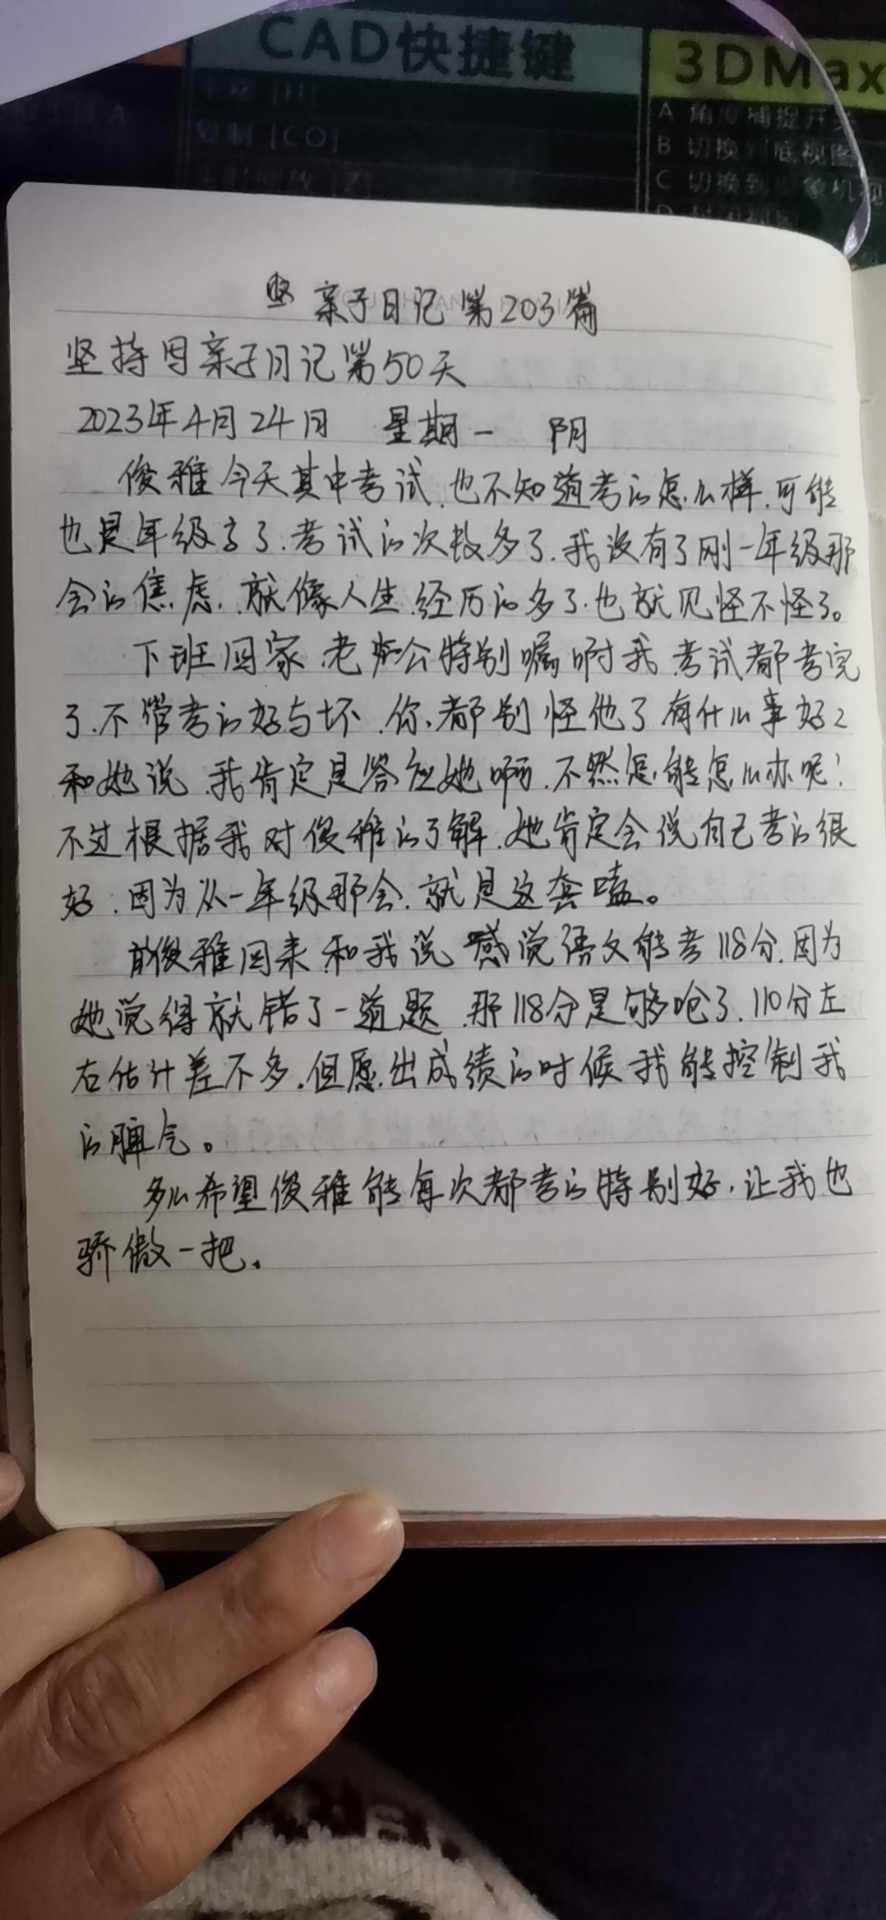 CAD快捷键
3DMax
复制 [CO]
A 角度捕捉开关
B 切换到底视图
C 切换到摄象机视
坚 亲子日记 第203篇
坚持写亲子日记第50天
2023年4月24日 星期一 阴
俊雅今天其中考试,也不知道考的怎么样,可能
也是年级高了,考试的次数多了,我没有了刚一年级那
会的焦虑,就像人生,经历的多了,也就见怪不怪了。
下班回家,老公特别嘱咐我,考试都考完
了,不管考的好与坏,你都别怪他了,有什么事好好
和她说,我肯定是答应她啊,不然怎能怎么办呢!
不过根据我对俊雅的了解,她肯定会说自己考的很
好,因为从一年级那会,就是这套嗑。
俊雅回来和我说,感觉语文能考118分,因为
她觉得就错了一道题,那118分是够呛了,110分左
右估计差不多,但愿出成绩的时候我能控制我
的脾气。
多么希望俊雅能每次都考的特别好,让我也
骄傲一把。